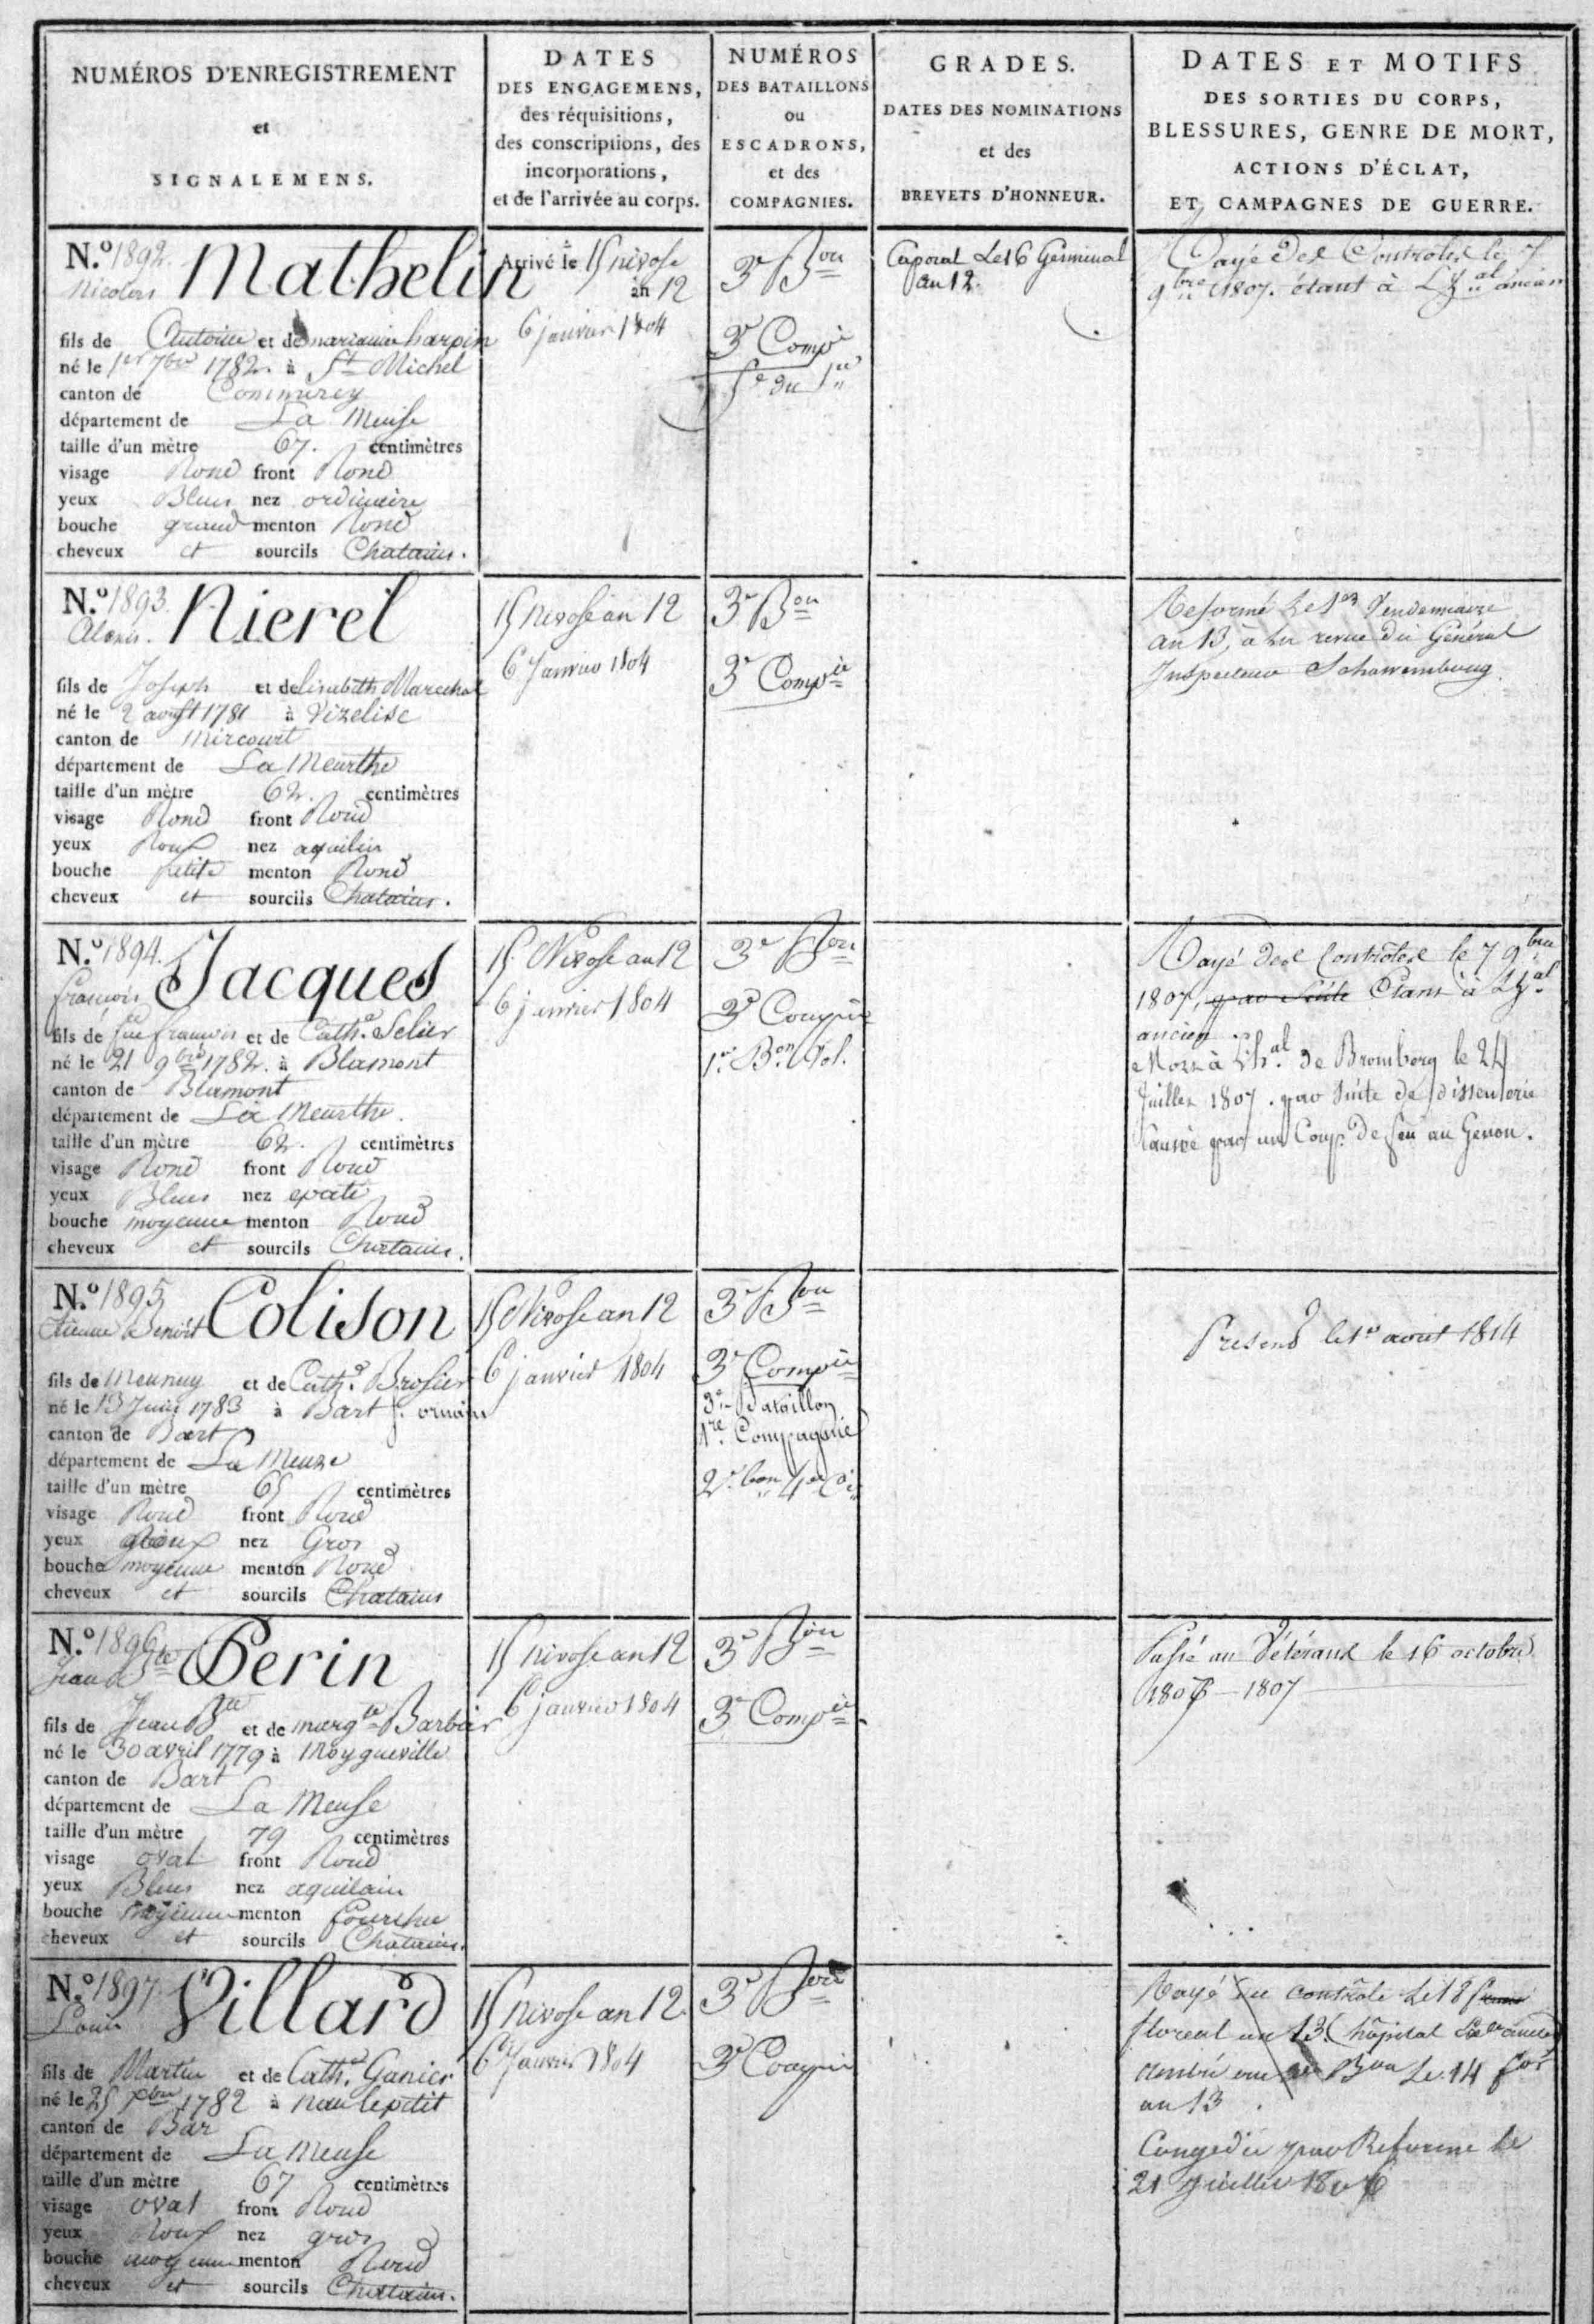 NUMÉROS D'ENREGISTREMENT
et
SIGNALEMENS.
DATES
DES ENGAGEMENS,
des réquisitions,
des conscriptions, des
incorporations,
et de l'arrivée au corps.
NUMÉROS
DES BATAILLONS
ou
ESCADRONS,
et des
COMPAGNIES.
GRADES.
DATES DES NOMINATIONS
et des
BREVETS D'HONNEUR.
DATES ET MOTIFS
DES SORTIES DU CORPS,
BLESSURES, GENRE DE MORT,
ACTIONS D'ÉCLAT,
ET CAMPAGNES DE GUERRE.
N.o 1892. Mathelin
Nicolas
fils de Antoine et de marianne harpin
né le 1er 7bre 1782. à St Michel
canton de Commercy
département de La Meuse
taille d'un mètre 67. centimètres
visage Rond front Rond
yeux Bleus nez ordinaire
bouche grand menton Rond
cheveux et sourcils Chatains.
Arrivé le 15 nivose
an 12
6 janvier 1804
3e Bon
3e Compie
Caporal Le 16 Germinal
an 12.
Rayé des Controles le 7
9bre 1807. étant à L'hal ancien
N.o 1893. Nierel
Alexis.
fils de Joseph et de Elisabeth Marechal
né le 2 aoust 1781 à Vizelise
canton de Mircourt
département de La Meurthe
taille d'un mètre 62. centimètres
visage Rond front Rond
yeux Roux nez aquilin
bouche petite menton Rond
cheveux et sourcils Chatains.
15 nivose an 12
6 Janvier 1804
3e Bon
3e Compie
Reformé Le 1er Vendemiaire
an 13, à la revue du Général
Inspecteur Schawembourg.
N.o 1894. Jacques
françois
fils de feu françois et de Cathe. Selier
né le 21 9bre 1782. à Blamont
canton de Blamont
département de La Meurthe.
taille d'un mètre 62. centimètres
visage Rond front Rond
yeux Bleus nez epaté
bouche moyenne menton Rond
cheveux et sourcils Chatains.
15 Nivose an 12
6 janvier 1804
3e Bon
3e Compie
1er Bon Vol.
Rayé des Controles le 7 9bre
1807, par Suite Etant à L'hal
ancien.
Mort à L'hal. de Bromberg le 24
Juillet 1807. par suite de dissenterie
Causée par un Coup de feu au Genou.
N.o 1895 Colison
Etienne Benoit
fils de Meunuy et de Cathe. Brosier
né le 13 Juin 1783 à Bart s. ornain
canton de Bart
département de La Meuze
taille d'un mètre 65 centimètres
visage Rond front Rond
yeux nez Gros
bouche moyenne menton Rond
cheveux et sourcils Chatains
15 Nivose an 12
6 janvier 1804
3e Bon
3e Compie
3e Bataillon
1re Compagnie
2e bon 4e Cie
Present le 1er aout 1814
N.o 1896 Perin
Jean Bte
fils de Jean Bte et de margte Barbier
né le 30 avril 1779 à
canton de Bart
département de La Meuse
taille d'un mètre 79 centimètres
visage oval front Rond
yeux Bleus nez aquilain
bouche moyenne menton fourchu
cheveux et sourcils Chatains.
15 nivose an 12
6 janvier 1804
3e Bon
3e Compie
Passé au Vétérans le 16 octobre
1807 — 1807
N.o 1897. Villard
Louis
fils de Martin et de Cathe. Ganier
né le 25 Xbre 1782 à
canton de Bar
département de La Meuse
taille d'un mètre 67 centimètres
visage oval front Rond
yeux Roux nez gros
bouche moyenne menton Rond
cheveux et sourcils Chatains.
15 Nivose an 12
6 Janvier 1804
3e Bon
3e Compie
Rayé du controle Le 18
floreal an 13. hôpital
Bon Le 14
an 13
Congedié par Reforme le
21 Juillet 1806